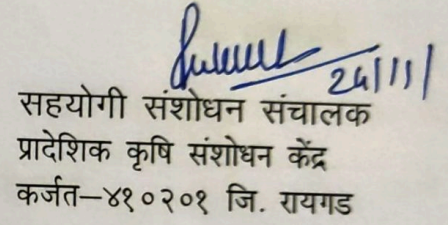 24/11/
सहयोगी संशोधन संचालक
प्रादेशिक कृषि संशोधन केंद्र
कर्जत–४१०२०१ जि. रायगड